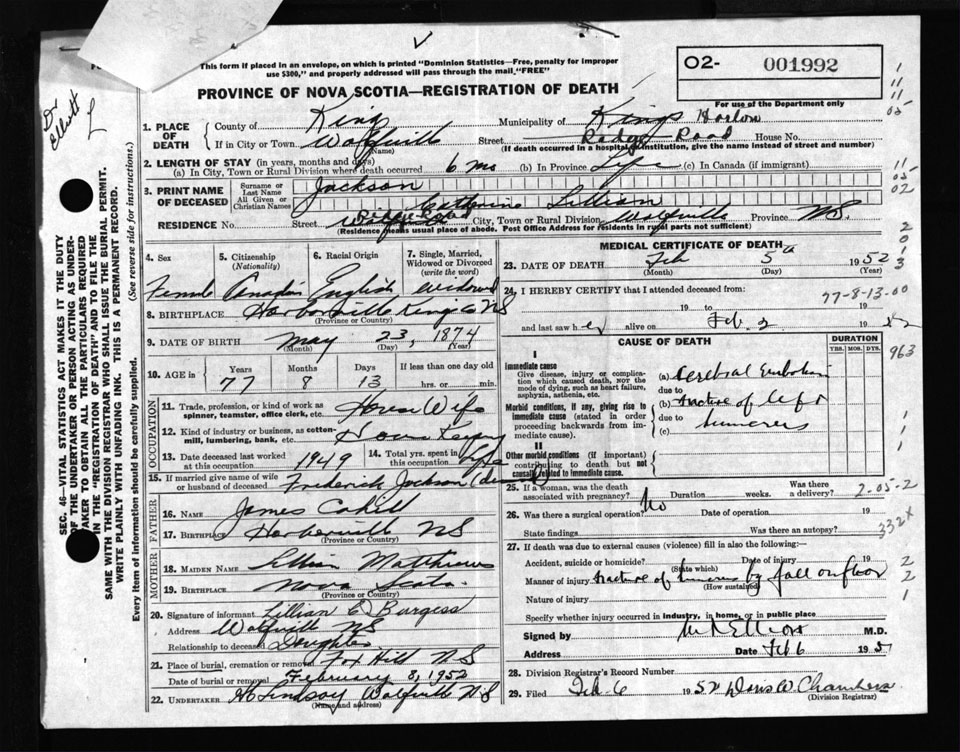 This form if placed in an envelope, on which is printed "Dominion Statistics—Free, penalty for improper
use $300," and properly addressed will pass through the mail "FREE"
PROVINCE OF NOVA SCOTIA—REGISTRATION OF DEATH
O2- 001992
For use of the Department only
Dr Elliott
1. PLACE OF DEATH
County of Kings Municipality of Kings Horton
If in City or Town Wolfville (Name) Street Ridge Road House No.
(If death occurred in a hospital or institution, give the name instead of street and number)
2. LENGTH OF STAY (in years, months and days)
(a) In City, Town or Rural Division where death occurred 6 mo (b) In Province Life (c) In Canada (if immigrant)
3. PRINT NAME OF DECEASED
Surname or Last Name Jackson
All Given or Christian Names Catherine Lillian
RESIDENCE No. Street Ridge Road City, Town or Rural Division Wolfville Province NS.
(Residence means usual place of abode. Post Office Address for residents in rural parts not sufficient)
4. Sex Female
5. Citizenship (Nationality) Canadian
6. Racial Origin English
7. Single, Married, Widowed or Divorced (write the word) Widowed
8. BIRTHPLACE Harborville Kings Co NS
(Province or Country)
9. DATE OF BIRTH May 23, 1874
(Month) (Day) (Year)
10. AGE in Years 77 Months 8 Days 13 If less than one day old hrs. or min.
OCCUPATION
11. Trade, profession, or kind of work as spinner, teamster, office clerk, etc. House Wife
12. Kind of industry or business, as cotton-mill, lumbering, bank, etc. House Keeping
13. Date deceased last worked at this occupation 1949 14. Total yrs. spent in this occupation Life
15. If married give name of wife or husband of deceased Frederick Jackson
FATHER
16. Name James Cahill
17. Birthplace Harborville NS
(Province or Country)
MOTHER
18. MAIDEN NAME Lillian Matthews
19. BIRTHPLACE Nova Scotia
(Province or Country)
20. Signature of informant Lillian C Burgess
Address Wolfville NS
Relationship to deceased Daughter
21. Place of burial, cremation or removal Fox Hill NS
Date of burial or removal February 8, 1952
22. UNDERTAKER Lindsay Wolfville NS
(Name and address)
MEDICAL CERTIFICATE OF DEATH
23. DATE OF DEATH Feb 5th 1952
(Month) (Day) (Year)
24. I HEREBY CERTIFY that I attended deceased from:
77-8-13.00
19 to 19
and last saw her alive on Feb. 2 1952
CAUSE OF DEATH
DURATION
YRS. MOS. DYS.
963
I
Immediate cause
Give disease, injury or complication which caused death, not the mode of dying, such as heart failure, asphyxia, asthenia, etc.
(a) Cerebral Embolism
due to
Morbid conditions, if any, giving rise to immediate cause (stated in order proceeding backwards from immediate cause).
(b) fracture of left
due to humerus
(c)
II
Other morbid conditions (if important) contributing to death but not causally related to immediate cause.
25. If a woman, was the death associated with pregnancy? No Duration weeks. Was there a delivery?
2-05-2
26. Was there a surgical operation? Date of operation 19
State findings Was there an autopsy?
332X
27. If death was due to external causes (violence) fill in also the following:—
Accident, suicide or homicide? (State which) Date of injury 19
Manner of injury fracture of humerus by fall on floor
(How sustained)
Nature of injury
Specify whether injury occurred in industry, in home, or in public place
Signed by Elliott M.D.
Address Date Feb 6 195
28. Division Registrar's Record Number
29. Filed Feb 6 1952 Doris W. Chambers
(Division Registrar)
SEC. 46—VITAL STATISTICS ACT MAKES IT THE DUTY
OF THE UNDERTAKER OR PERSON ACTING AS UNDER-
TAKER TO OBTAIN ALL THE PARTICULARS REQUIRED
IN THE "REGISTRATION OF DEATH" AND TO FILE THE
SAME WITH THE DIVISION REGISTRAR WHO SHALL ISSUE THE BURIAL PERMIT.
WRITE PLAINLY WITH UNFADING INK. THIS IS A PERMANENT RECORD.
Every item of information should be supplied. (See reverse side for instructions.)